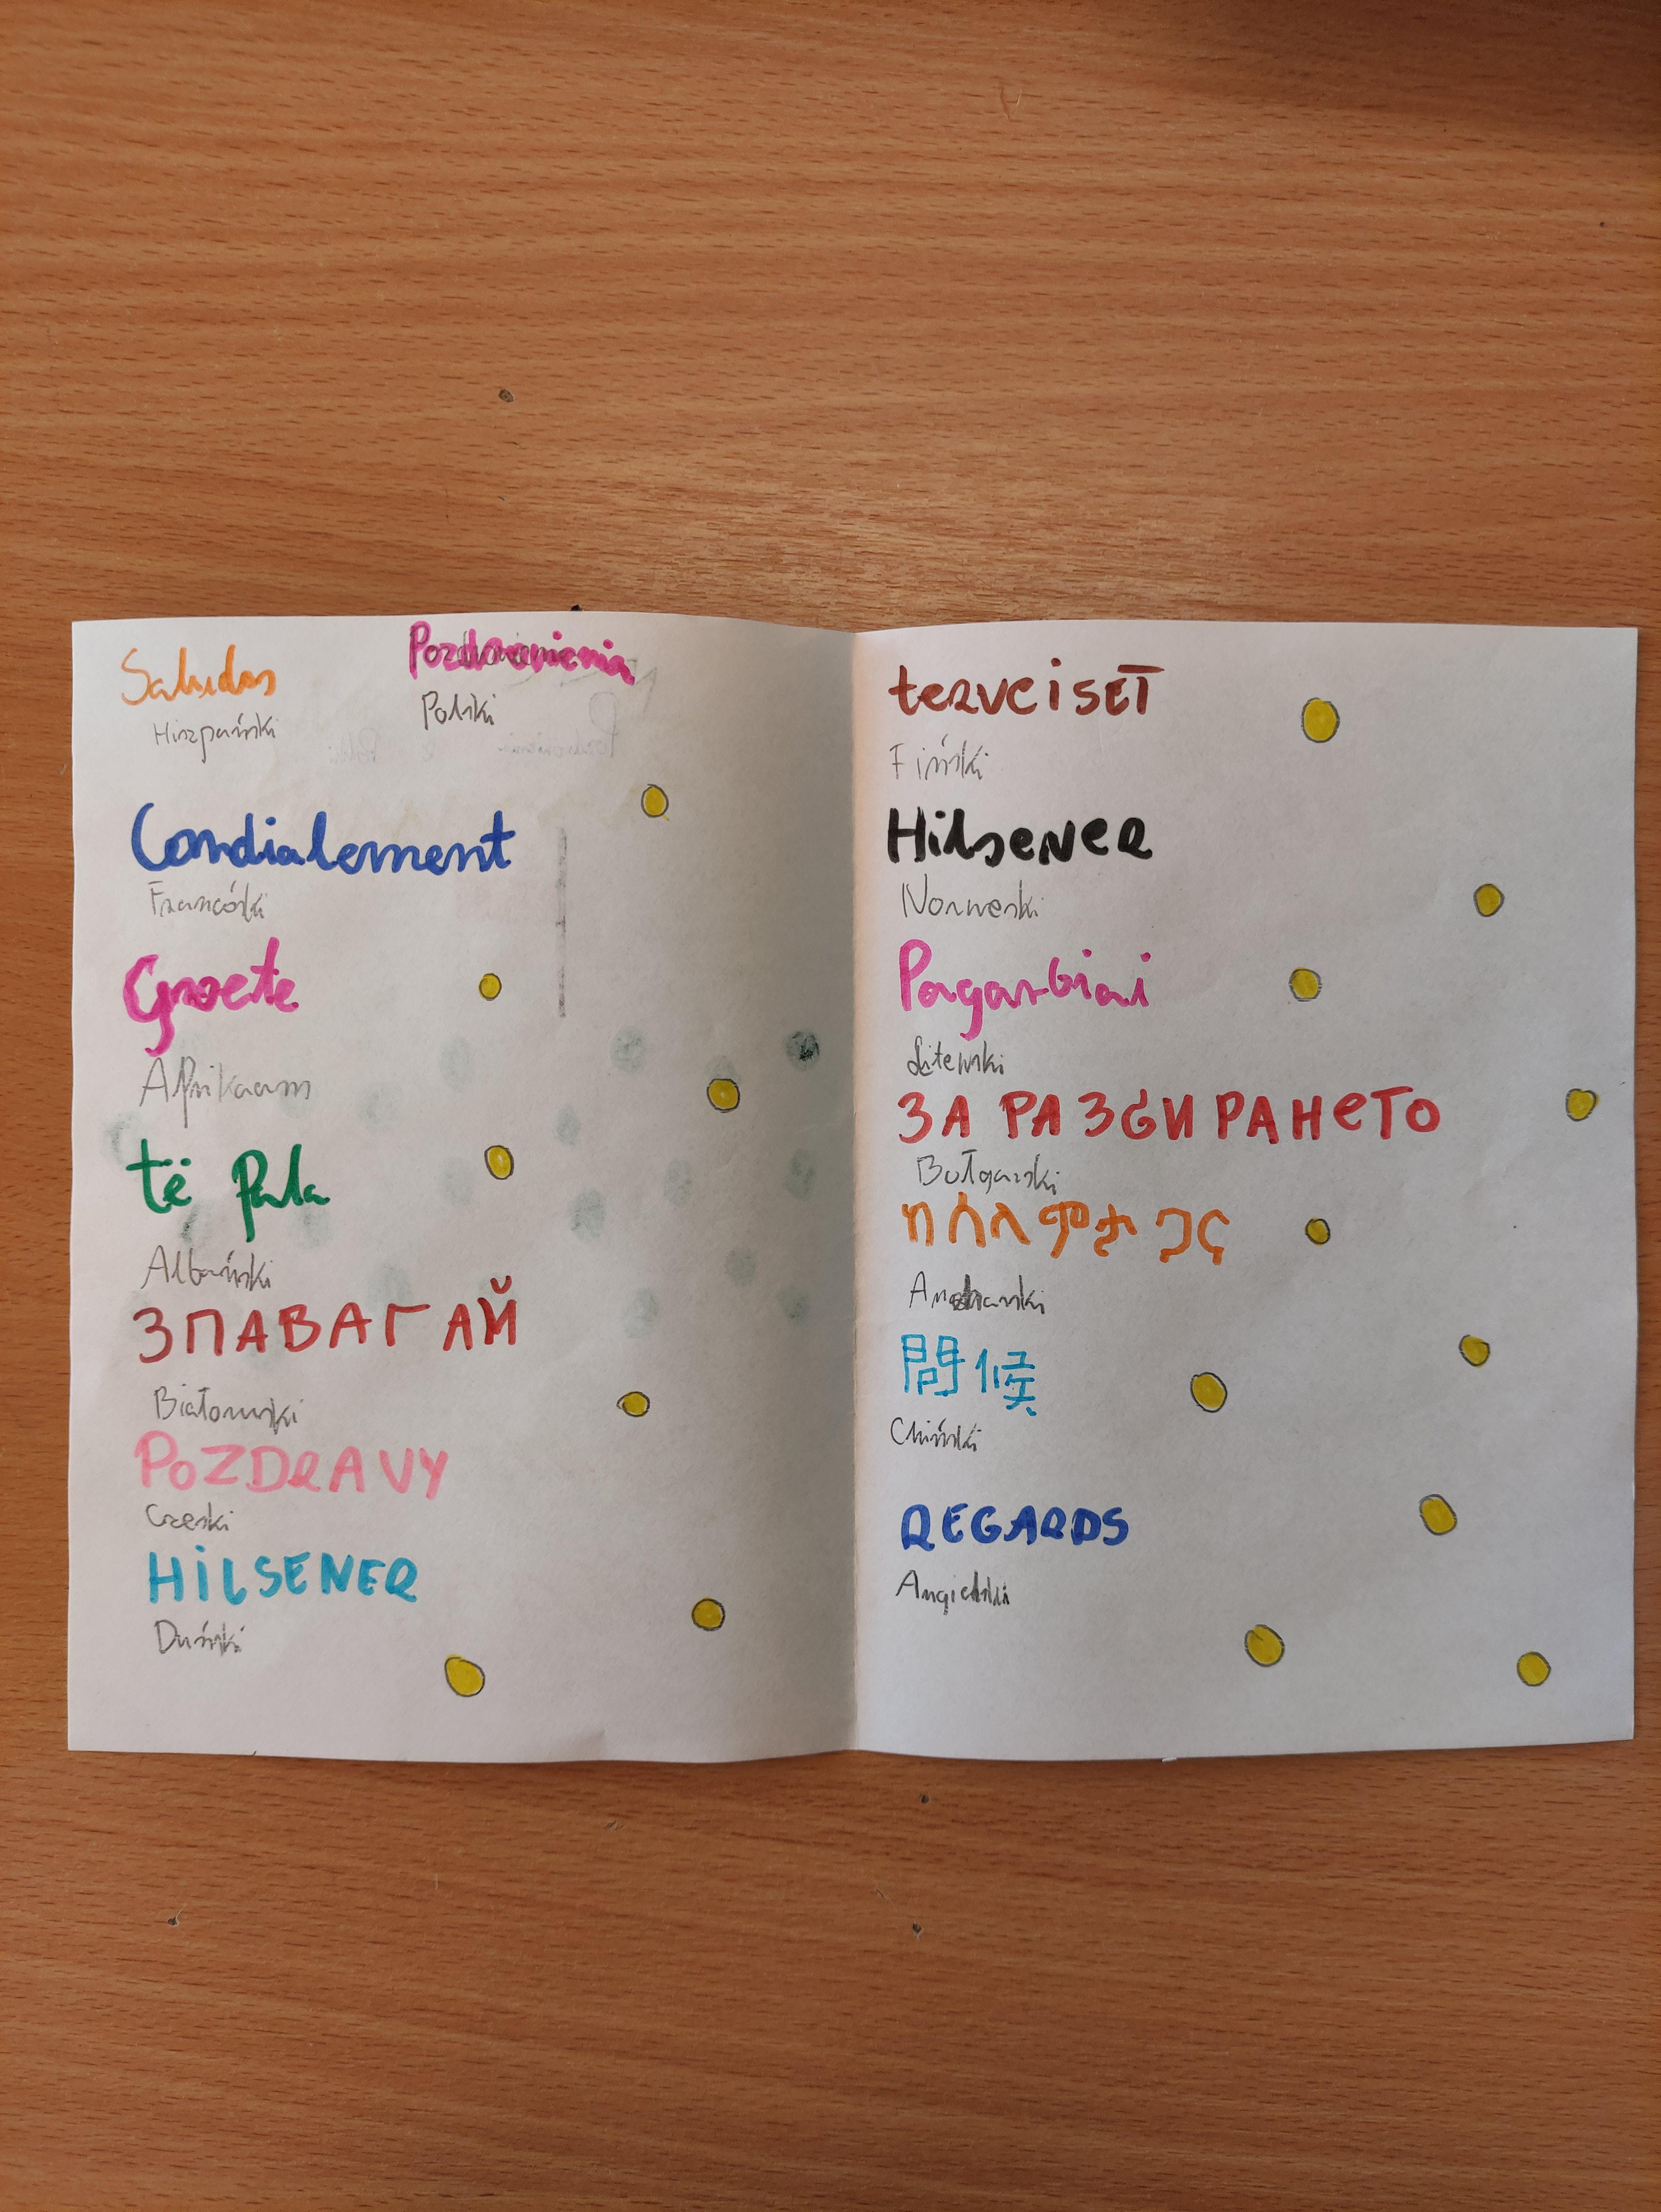 Saludos Pozdrowienia
Hiszpański Polski
Cordialement
Francóski
Groete
Afrikaans
të fala
Albański
ЗПАВАГАЙ
Białoruski
POZDRAVY
Czeski
HILSENER
Duński
terveiset
Fiński
Hilsener
Norweski
Pagarbiai
Litewski
ЗА РАЗБИРАНЕТО
Bułgarski
ከሰላምታ ጋር
問候
Chiński
REGARDS
Angielski